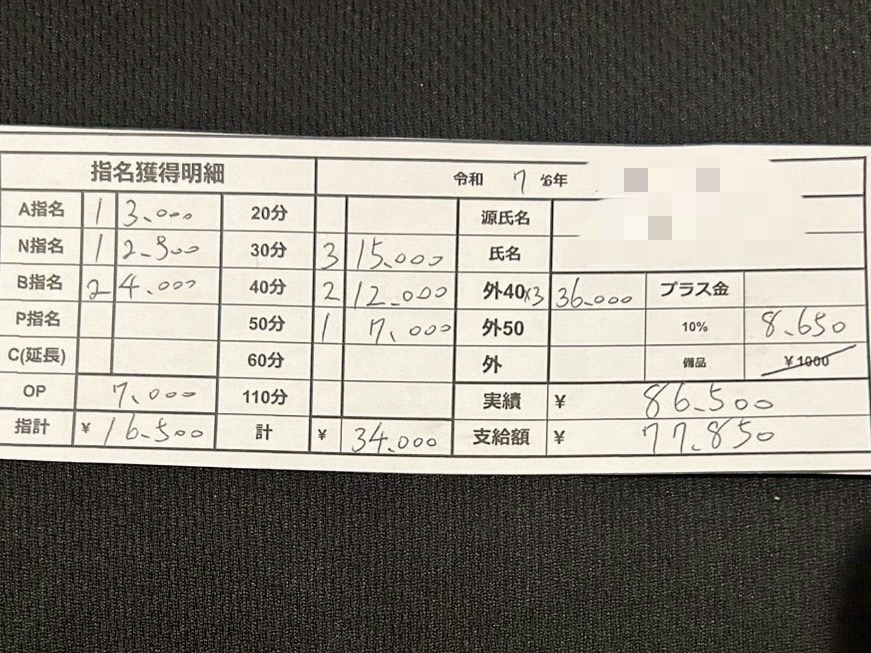 指名獲得明細 令和 7 年
A指名 1 3.000 20分 源氏名
N指名 1 2.500 30分 3 15.000 氏名
B指名 2 4.000 40分 2 12.000 外40×3 36.000 プラス金
P指名 50分 1 7.000 外50 10% 8.650
C(延長) 60分 外 備品 ¥1000
OP 7.000 110分 実績 ¥ 86.500
指計 ¥ 16.500 計 ¥ 34.000 支給額 ¥ 77.850